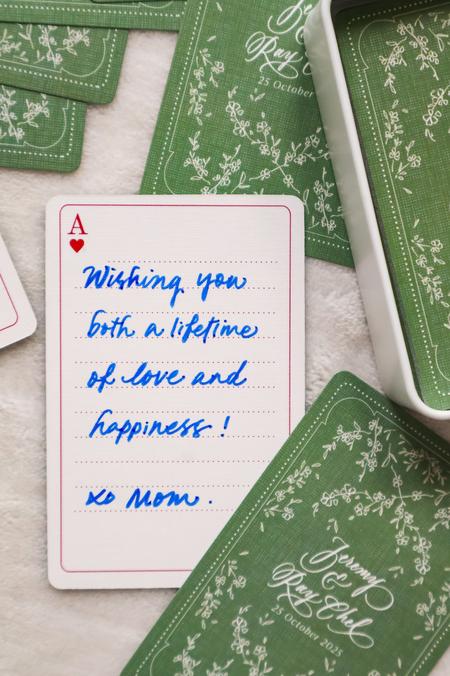 Ray Chel
25 October
A
Wishing you
both a lifetime
of love and
happiness !
xo Mom.
Jeremy
&
Ray Chel
25 October 2025